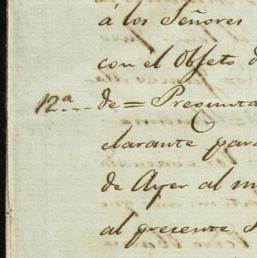 á los Señores
con el Objeto d
12ª... de = Pregunta
clarante para
de Ayer al m
al presente